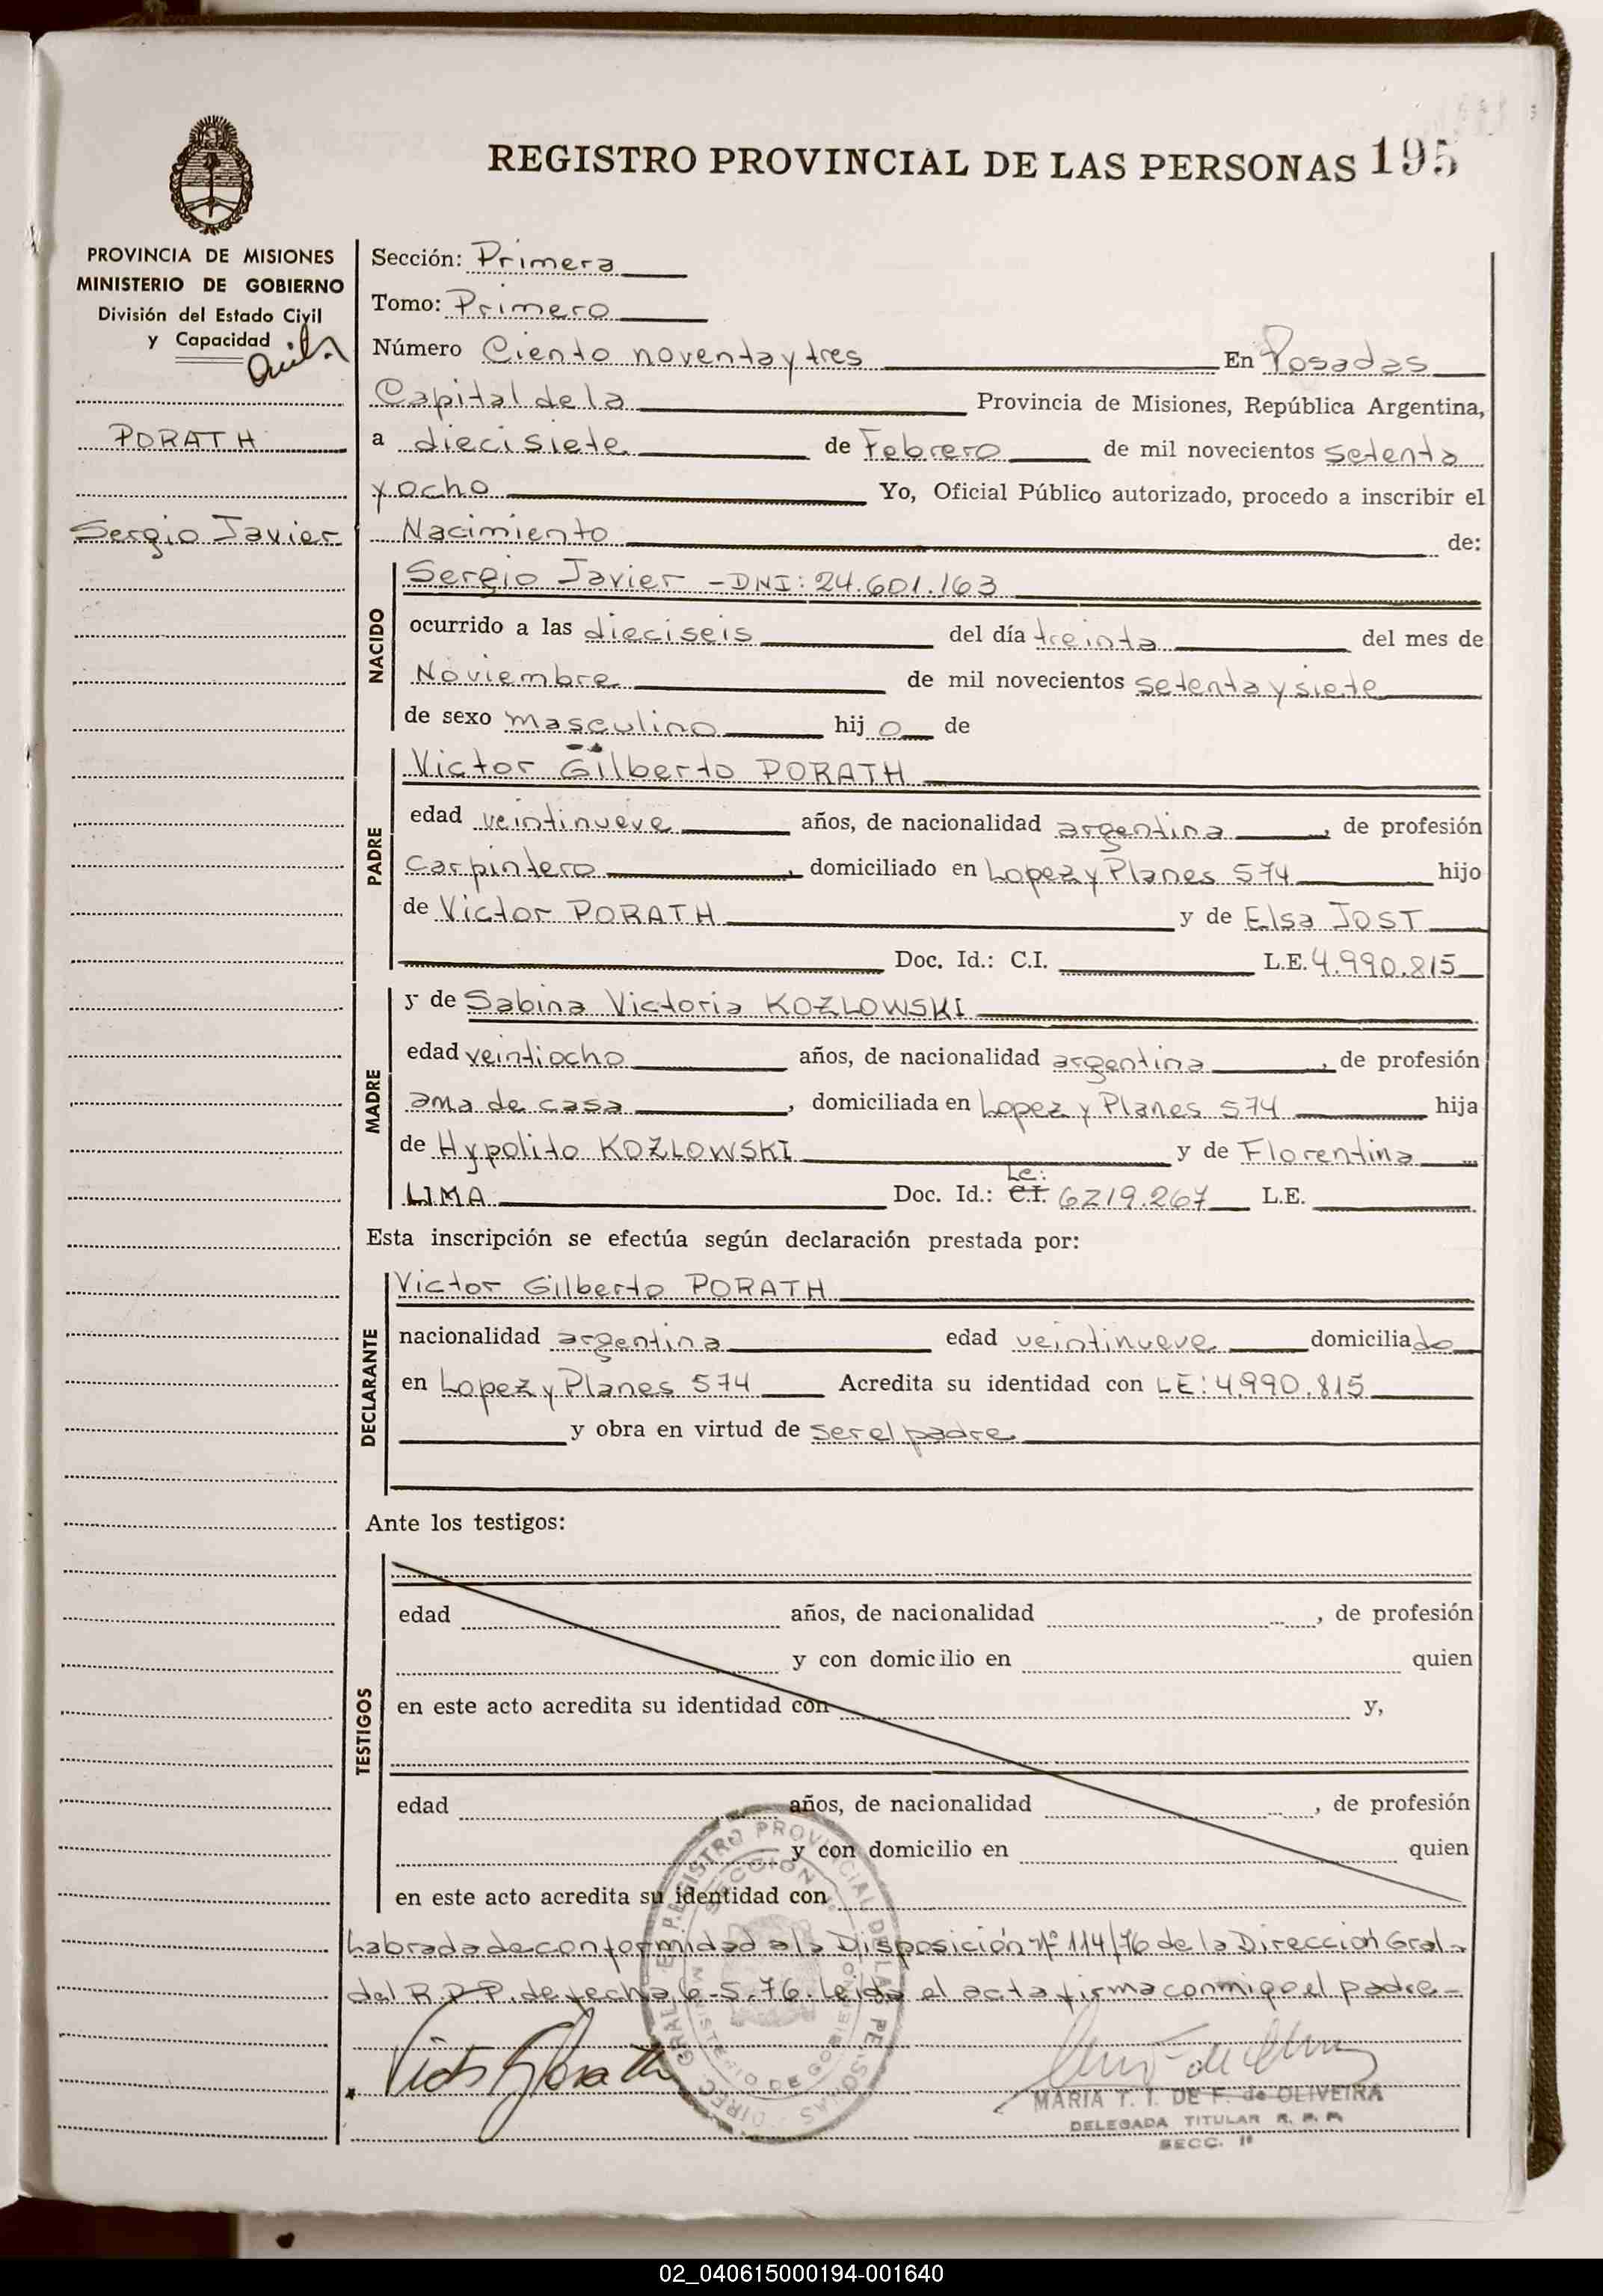 REGISTRO PROVINCIAL DE LAS PERSONAS 195
PROVINCIA DE MISIONES
MINISTERIO DE GOBIERNO
División del Estado Civil
y Capacidad
PORATH
Sergio Javier
Sección: Primera
Tomo: Primero
Número Ciento noventa y tres En Posadas
Capital de la Provincia de Misiones, República Argentina,
a diecisiete de Febrero de mil novecientos setenta
y ocho Yo, Oficial Público autorizado, procedo a inscribir el
Nacimiento de:
NACIDO
Sergio Javier - DNI: 24.601.163
ocurrido a las dieciseis del día treinta del mes de
Noviembre de mil novecientos setenta y siete
de sexo masculino hijo de
PADRE
Victor Gilberto PORATH
edad veintinueve años, de nacionalidad argentina, de profesión
carpintero, domiciliado en Lopez y Planes 574 hijo
de Victor PORATH y de Elsa JOST
Doc. Id.: C.I. L.E. 4.990.815
MADRE
y de Sabina Victoria KOZLOWSKI
edad veintiocho años, de nacionalidad argentina, de profesión
ama de casa, domiciliada en Lopez y Planes 574 hija
de Hypolito KOZLOWSKI y de Florentina
LIMA Doc. Id.: C.I. Lc: 6219.267 L.E.
Esta inscripción se efectúa según declaración prestada por:
DECLARANTE
Victor Gilberto PORATH
nacionalidad argentina edad veintinueve domiciliado
en Lopez y Planes 574 Acredita su identidad con LE: 4.990.815
y obra en virtud de ser el padre
Ante los testigos:
TESTIGOS
edad años, de nacionalidad , de profesión
y con domicilio en quien
en este acto acredita su identidad con y,
edad años, de nacionalidad , de profesión
y con domicilio en quien
en este acto acredita su identidad con
Labrada de conformidad a la Disposición Nº 114/76 de la Dirección Gral.
del R.P.P. de fecha 6-5-76. Leida el acta firma conmigo el padre-
MARIA T. I. DE F. de OLIVEIRA
DELEGADA TITULAR R. P. P.
SECC. 1ª
02_040615000194-001640